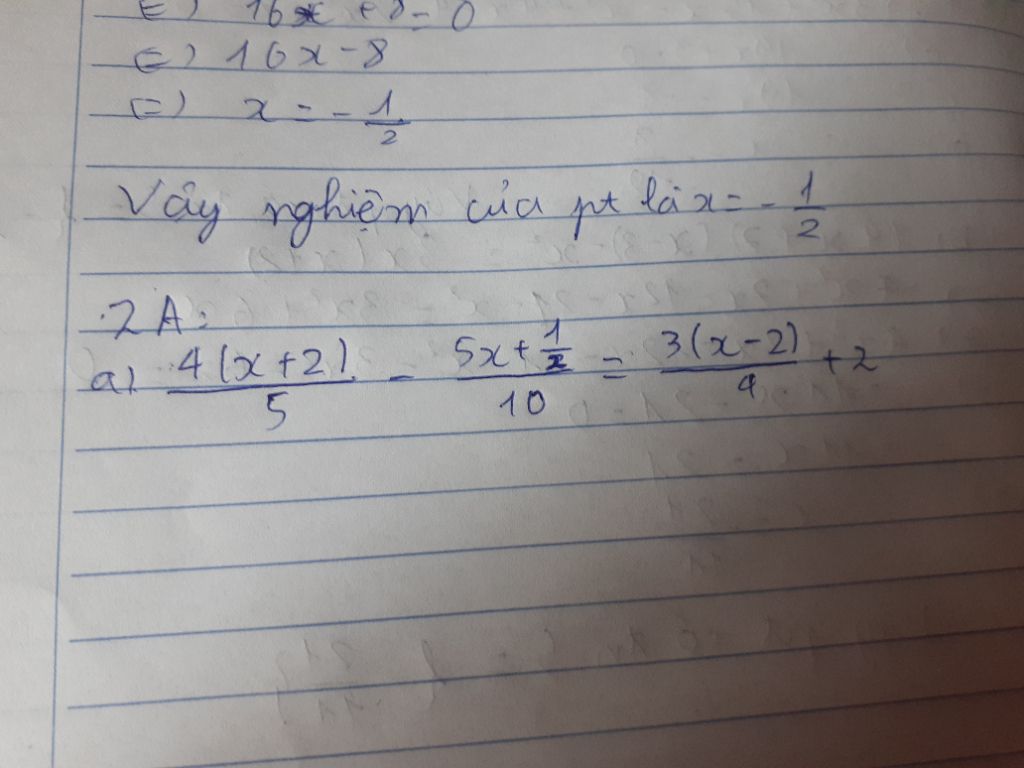 ⇔ 16x + 8 = 0
⇔ 16x - 8
⇔ x = - 1/2
Vây nghiệm của pt là x = - 1/2
2A:
a) 4(x+2)/5 - (5x + 1/2)/10 = 3(x-2)/4 + 2